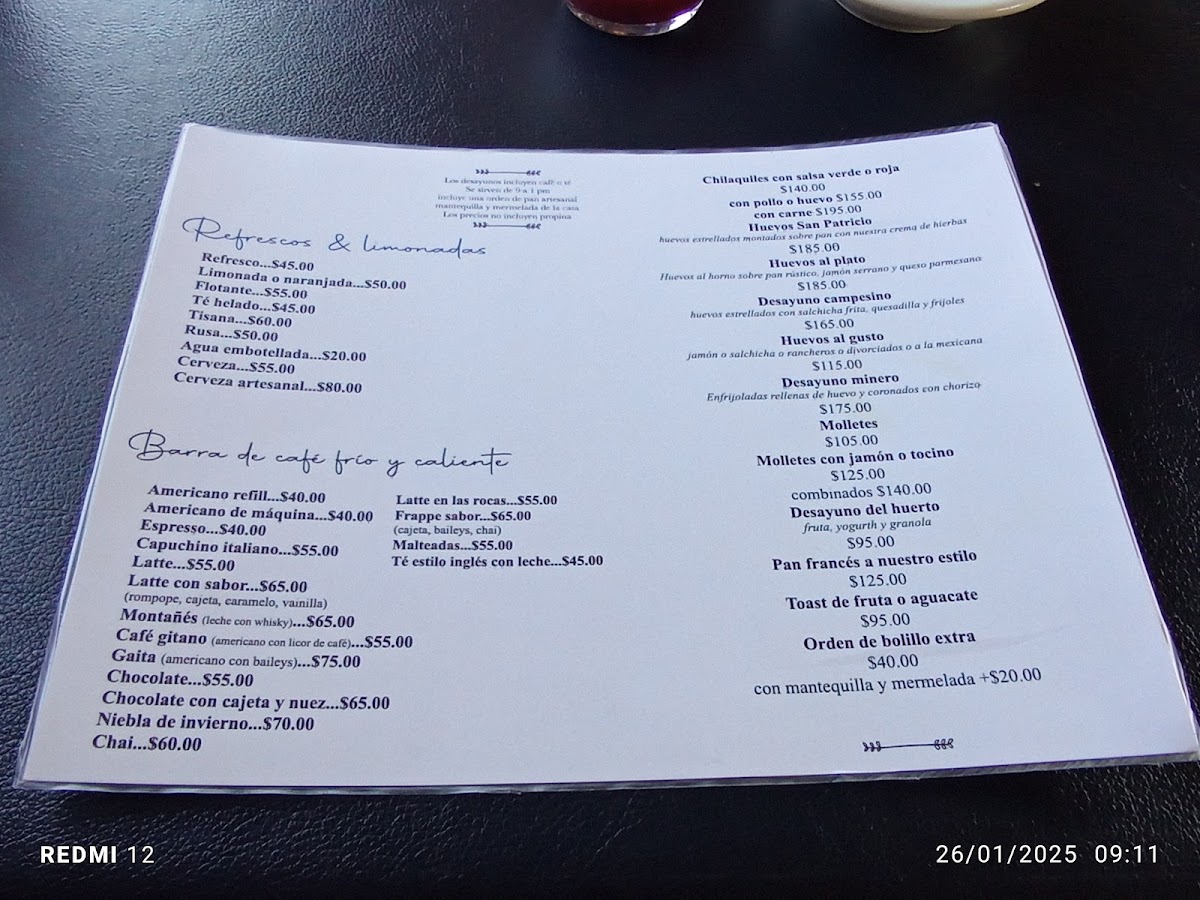 Los desayunos incluyen café o té
Se sirven de 9 a 1 pm
incluye una orden de pan artesanal
mantequilla y mermelada de la casa
Los precios no incluyen propina
Refrescos & limonadas
Refresco...$45.00
Limonada o naranjada...$50.00
Flotante...$55.00
Té helado...$45.00
Tisana...$60.00
Rusa...$50.00
Agua embotellada...$20.00
Cerveza...$55.00
Cerveza artesanal...$80.00
Barra de café frío y caliente
Americano refill...$40.00
Americano de máquina...$40.00
Espresso...$40.00
Capuchino italiano...$55.00
Latte...$55.00
Latte con sabor...$65.00
(rompope, cajeta, caramelo, vainilla)
Montañés (leche con whisky)...$65.00
Café gitano (americano con licor de café)...$55.00
Gaita (americano con baileys)...$75.00
Chocolate...$55.00
Chocolate con cajeta y nuez...$65.00
Niebla de invierno...$70.00
Chai...$60.00
Latte en las rocas...$55.00
Frappe sabor...$65.00
(cajeta, baileys, chai)
Malteadas...$55.00
Té estilo inglés con leche...$45.00
Chilaquiles con salsa verde o roja
$140.00
con pollo o huevo $155.00
con carne $195.00
Huevos San Patricio
huevos estrellados montados sobre pan con nuestra crema de hierbas
$185.00
Huevos al plato
Huevos al horno sobre pan rústico, jamón serrano y queso parmesano
$185.00
Desayuno campesino
huevos estrellados con salchicha frita, quesadilla y frijoles
$165.00
Huevos al gusto
jamón o salchicha o rancheros o divorciados o a la mexicana
$115.00
Desayuno minero
Enfrijoladas rellenas de huevo y coronados con chorizo
$175.00
Molletes
$105.00
Molletes con jamón o tocino
$125.00
combinados $140.00
Desayuno del huerto
fruta, yogurth y granola
$95.00
Pan francés a nuestro estilo
$125.00
Toast de fruta o aguacate
$95.00
Orden de bolillo extra
$40.00
con mantequilla y mermelada +$20.00
REDMI 12
26/01/2025 09:11